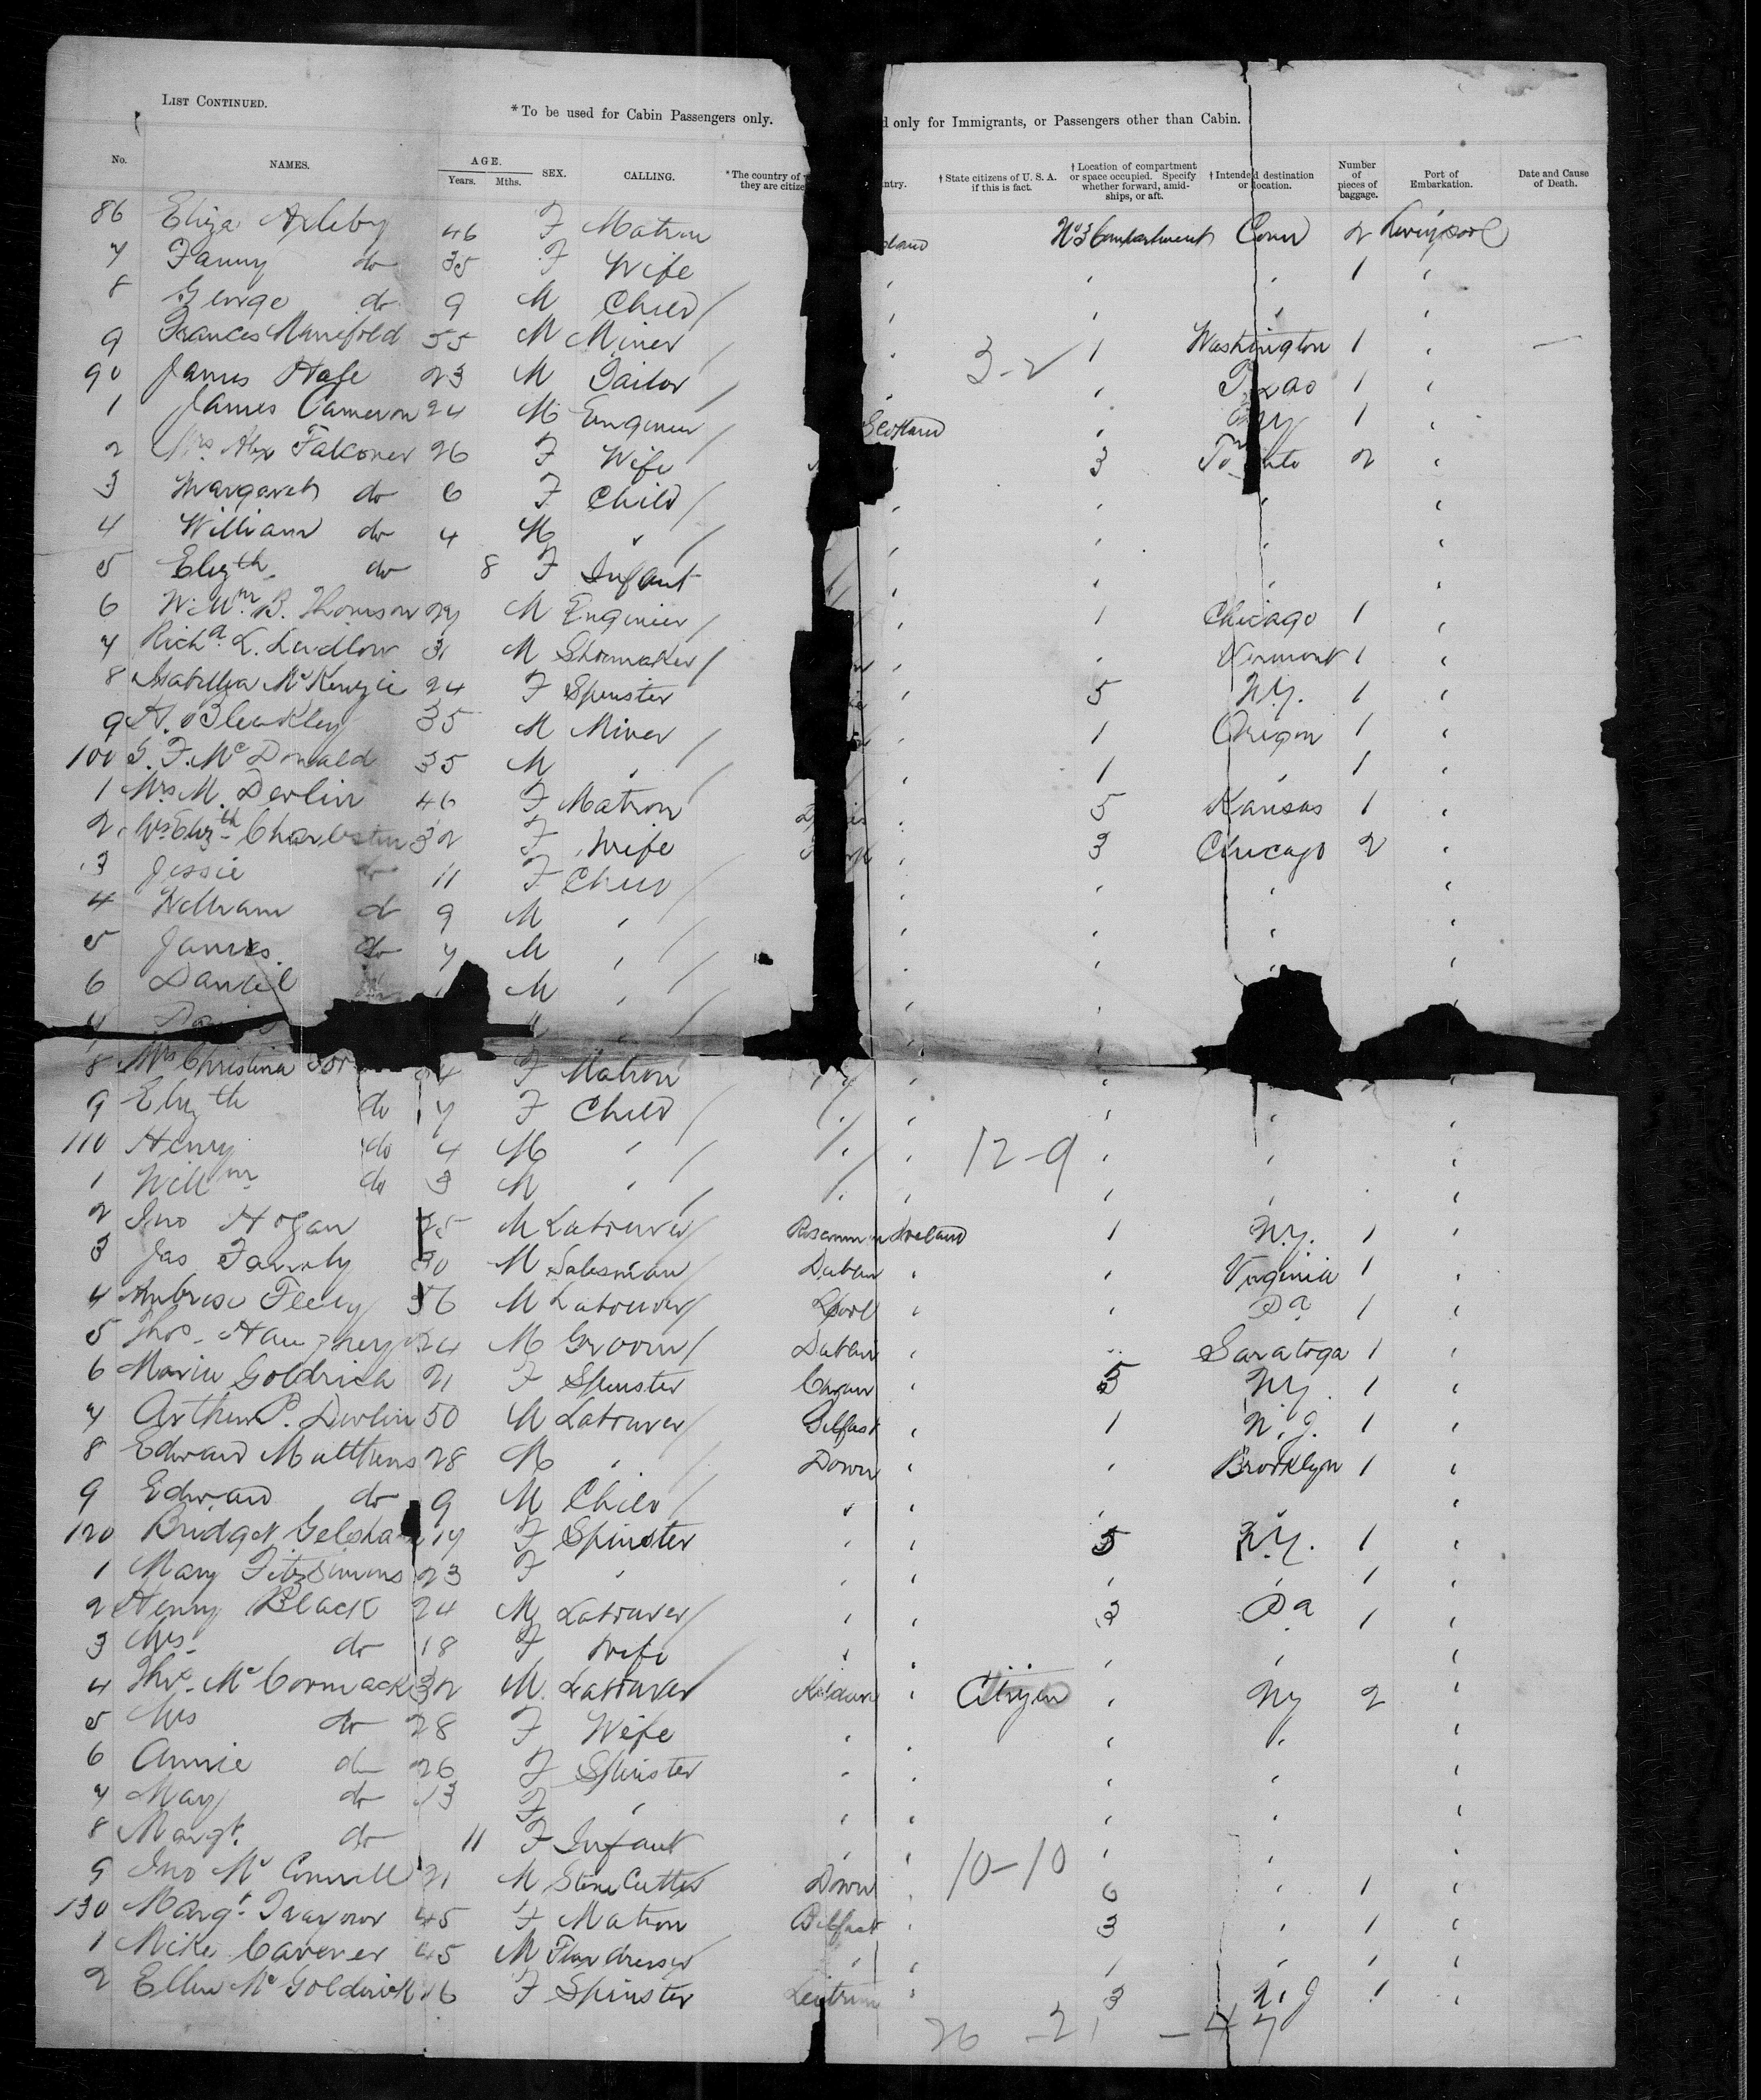 LIST CONTINUED.
*To be used for Cabin Passengers only.
d only for Immigrants, or Passengers other than Cabin.
No. NAMES. AGE. Years. Mths. SEX. CALLING. *The country of they are citize ntry. †State citizens of U. S. A. if this is fact. †Location of compartment or space occupied. Specify whether forward, amidships, or aft. †Intended destination or location. Number of pieces of baggage. Port of Embarkation. Date and Cause of Death.
86 Eliza Apleby 46 F Matron land No 3 Compartment Conn 2 Liverpool
7 Fanny do 35 F Wife " " " 1 "
8 George do 9 M Child / " " " "
9 Frances Manifold 55 M Miner / " 3-2 1 Washington 1 "
90 James Hale 23 M Tailor / " " Texas 1 "
1 James Cameron 24 M Engineer / Scotland " NY 1 "
2 Mrs Alex Falconer 26 F Wife " 3 Toronto 2 "
3 Margaret do 6 F Child / " " " "
4 William do 4 M " / " " " "
5 Elizth do 8 F Infant " " " "
6 Willm B. Thomson 27 M Engineer / " 1 Chicago 1 "
7 Richd L. Ludlow 31 M Shoemaker / " " Vermont 1 "
8 Isabella McKenzie 24 F Spinster " 5 N.Y. 1 "
9 A. Bleakley 35 M Miner / " 1 Oregon 1 "
100 McDonald 35 M " / " 1 " 1 "
1 Mrs M. Devlin 46 F Matron " 5 Kansas 1 "
2 Mrs Elizth 32 F Wife " 3 Chicago 2 "
3 Jessie do 11 F Child / " " " "
4 William do 9 M " / " " " "
5 James do 7 M " / " " " "
6 Daniel do M " / " "
7 " / "
8 Mrs Christina 4 F Matron " " "
9 Elizth do 7 F Child / " " " " "
110 Henry do 4 M " / " " 12-9 " " "
1 Willm do 3 M " / " " " " "
2 Jno Hogan 25 M Labourer / Ireland 1 N.Y. 1 "
3 Jas 30 M Salesman / Dublin " " Virginia 1 "
4 Ambrose 56 M Labourer / " " Pa 1 "
5 Thos 24 M Groom / Dublin " " Saratoga 1 "
6 Maria Goldrick 21 F Spinster Cavan " 5 NY. 1 "
7 Arthur P. Devlin 50 M Labourer / Belfast " 1 N.J. 1 "
8 Edward Matthews 28 M " / Down " " Brooklyn 1 "
9 Edward do 9 M Child / " " " "
120 Bridget 19 F Spinster " " 5 N.Y. 1 "
1 Mary Fitzsimons 23 F " " " " " 1 "
2 Henry Black 24 M Labourer / " " 3 Pa 1 "
3 Mrs do 18 F Wife " " " " "
4 Thos McCormack 32 M Labourer Kildare " Citizen " NY 2 "
5 Mrs do 28 F Wife " " " " "
6 Annie do 26 F Spinster " " " " "
7 Mary do 13 F " " " " " "
8 Margt do 11 F Infant " " 10-10 " " "
9 Jno McConnell 21 M Stone Cutter Down " 6 " 1 "
130 Margt 45 F Matron Belfast " 3 " 1 "
1 Mike 45 M Flax dresser " " 1 " 1 "
2 Ellen McGoldrick 16 F Spinster Leitrim " 3 N.J 1 "
26 - 21 - 47